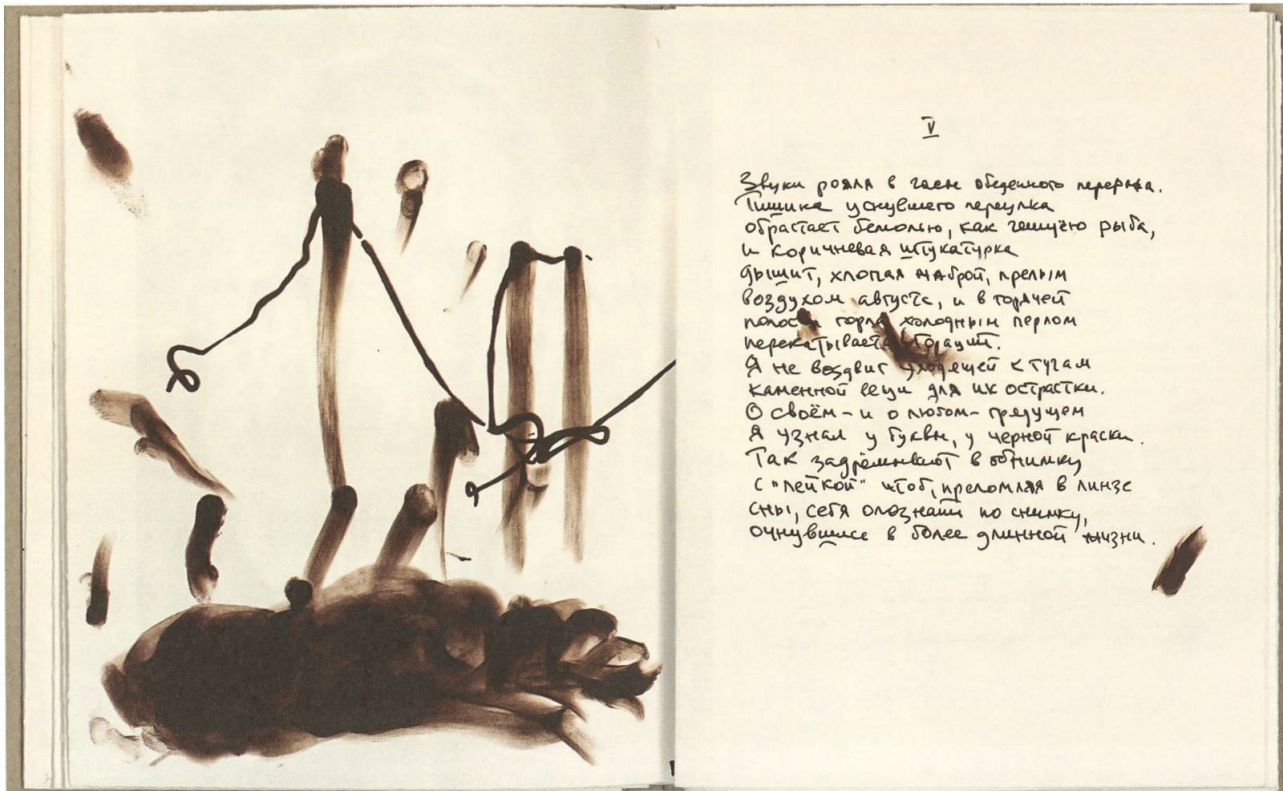 V
Звуки рояля в часы обеденного перерыва.
Тишина уснувшего переулка
обрастает бемолью, как чешуёю рыба,
и коричневая штукатурка
дышит, хлопая жаброй, прелым
воздухом августа, и в горячей
полости горла холодным перлом
перекатывается Гораций.
Я не воздвиг уходящей к тучам
каменной вещи для их острастки.
О своём - и о любом - грядущем
я узнал у буквы, у черной краски.
Так задрёмывают в обнимку
с "лейкой" чтоб, преломляя в линзе
сны, себя опознать по снимку,
очнувшись в более длинной жизни.